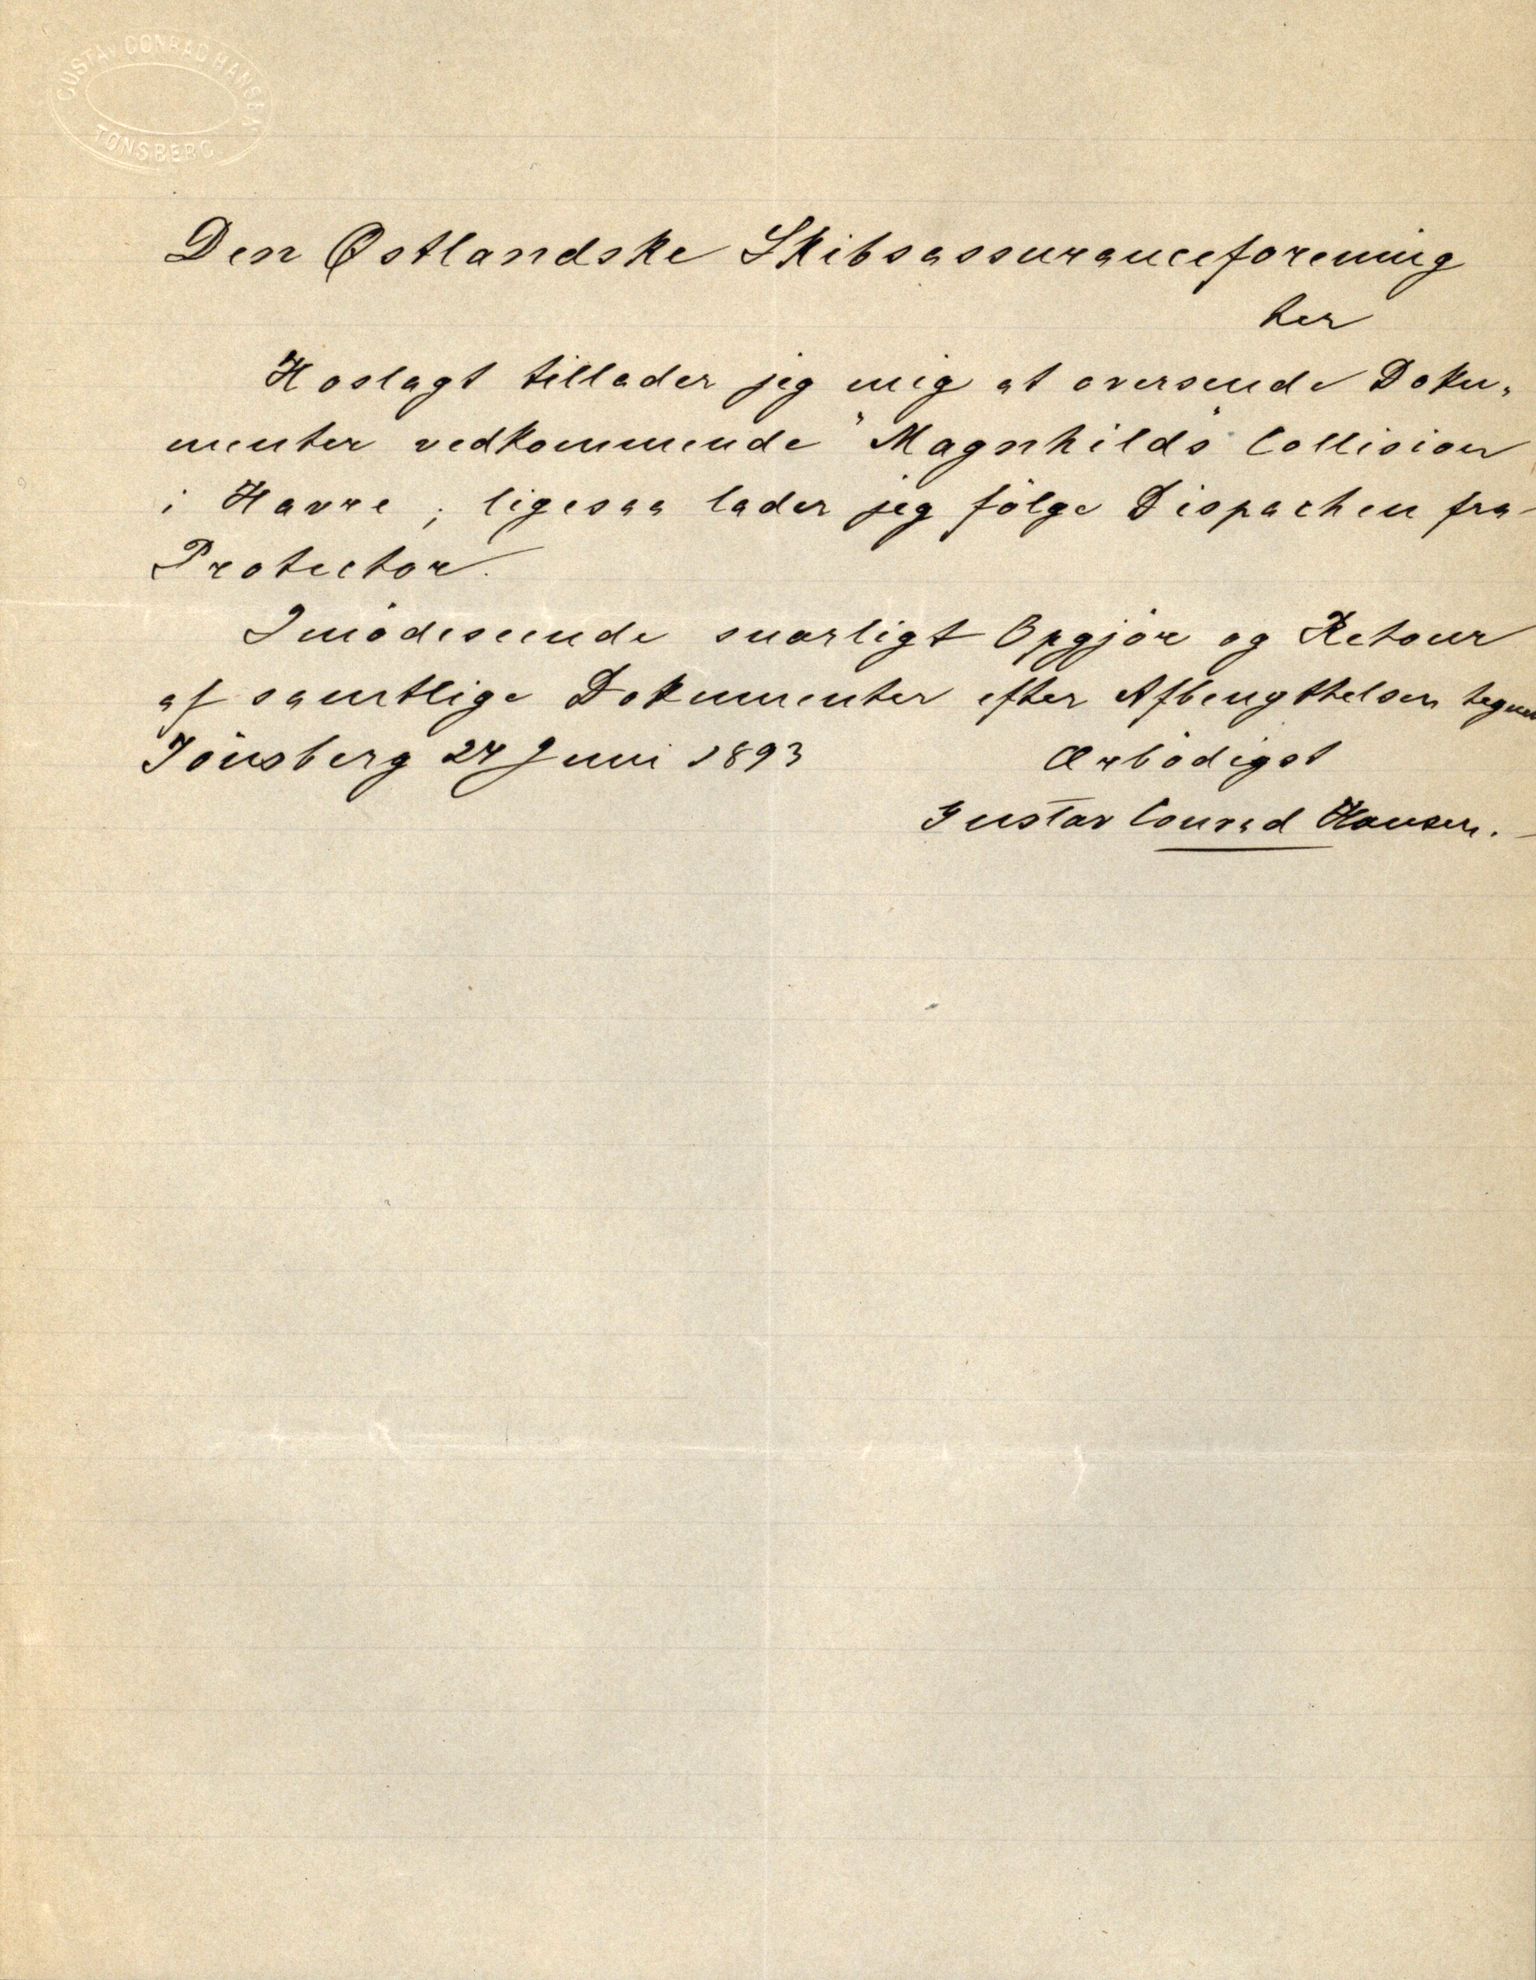 GUSTAV CONRAD HANSEN
TÖNSBERG.
Den Østlandske Skibsassuranceforening
her
Hoslagt tillader jeg mig at oversende Doku-
menter vedkommende "Magnhilds" Collision
i Havre; ligesaa lader jeg fölge Dispachen fra
Protector.
Imödeseende snarligt Opgjör og Retour
af samtlige Dokumenter efter Afbenyttelsen tegner
Tönsberg 27 Juni 1893 Ærbödigst
Gustav Conrad Hansen.